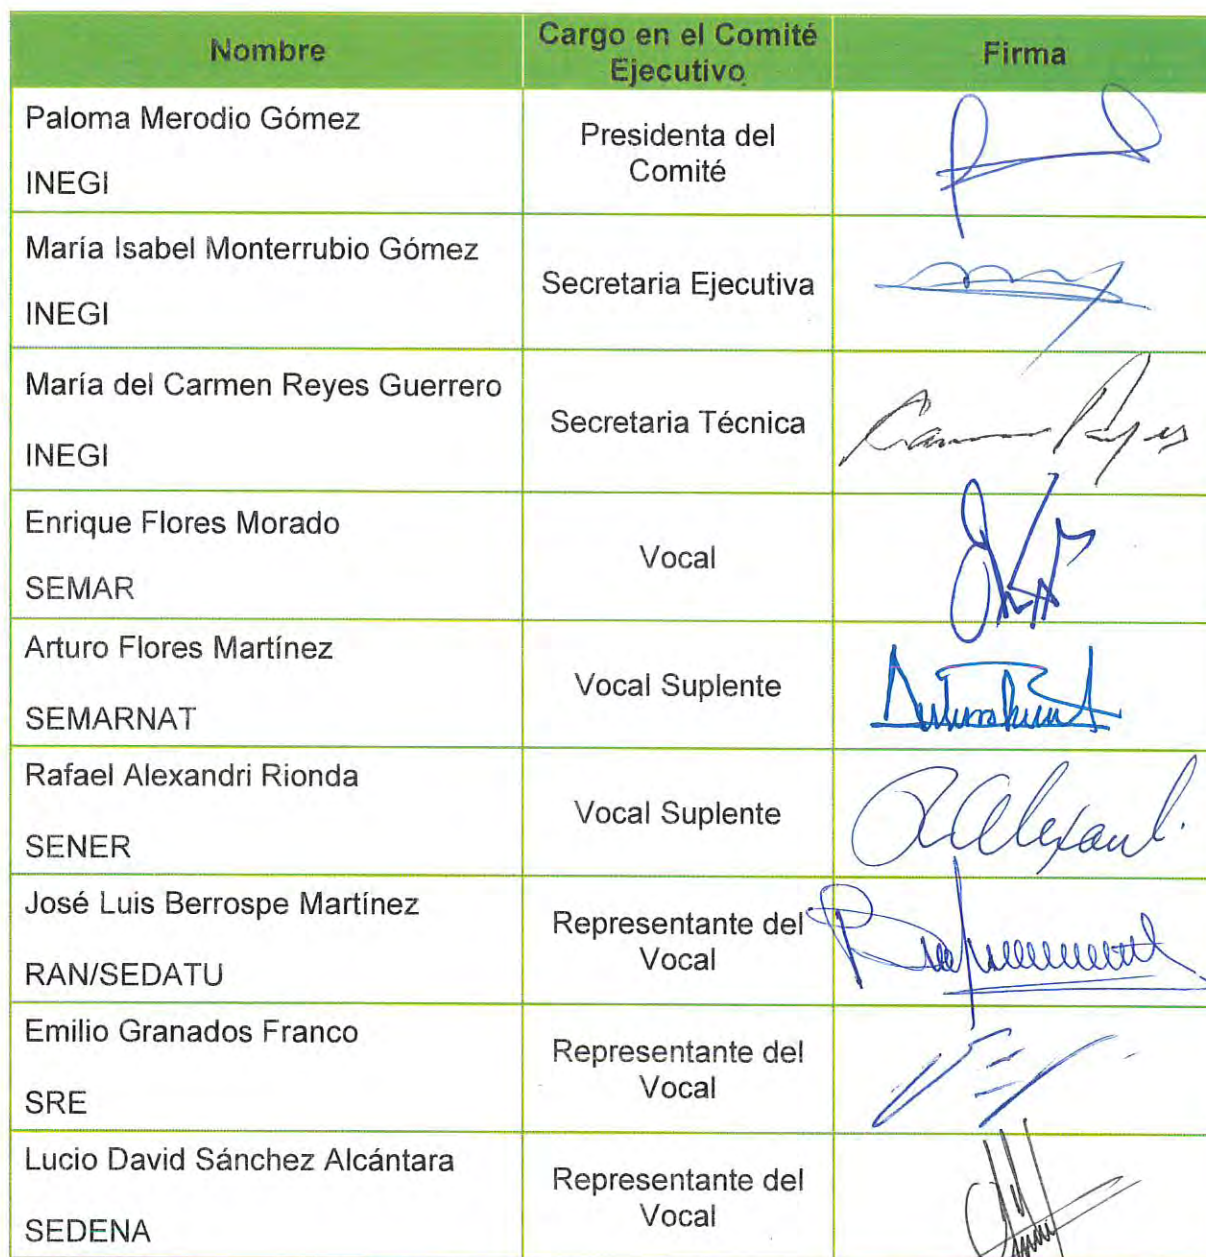 Nombre
Cargo en el Comité
Ejecutivo
Firma
Paloma Merodio Gómez
INEGI
Presidenta del
Comité
María Isabel Monterrubio Gómez
INEGI
Secretaria Ejecutiva
María del Carmen Reyes Guerrero
INEGI
Secretaria Técnica
Carmen Reyes
Enrique Flores Morado
SEMAR
Vocal
Arturo Flores Martínez
SEMARNAT
Vocal Suplente
Rafael Alexandri Rionda
SENER
Vocal Suplente
José Luis Berrospe Martínez
RAN/SEDATU
Representante del
Vocal
Emilio Granados Franco
SRE
Representante del
Vocal
Lucio David Sánchez Alcántara
SEDENA
Representante del
Vocal